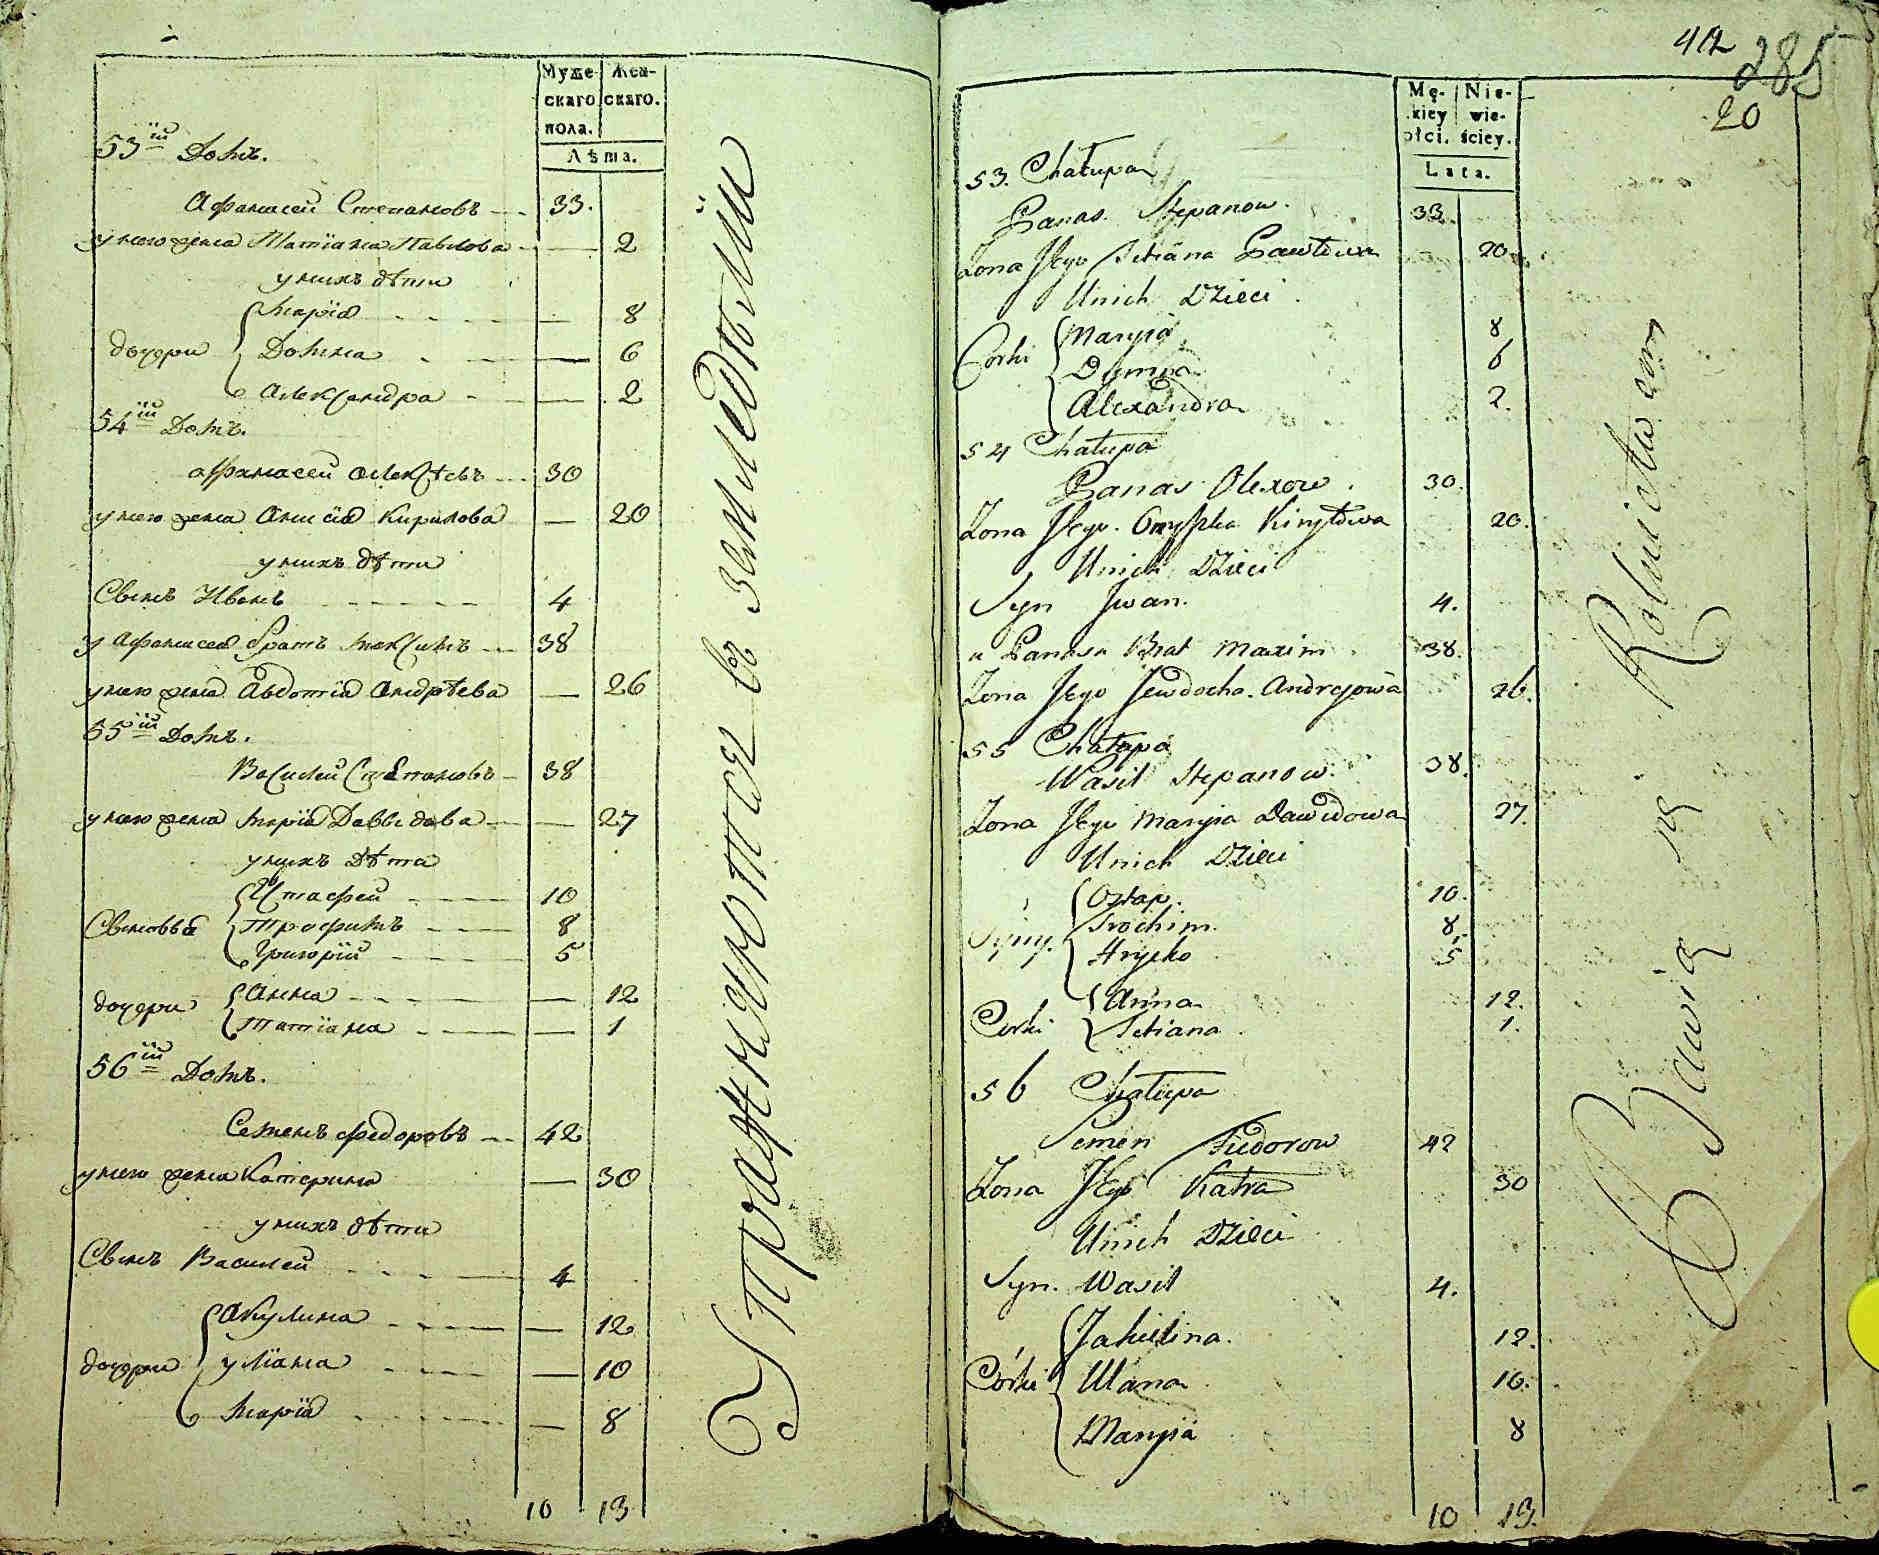 Муже-
скаго
пола.
Жен-
скаго.
Лѣта.
53й Домъ.
Афанасей Степановъ 33.
у него жена Татіана Павлова 2
у нихъ дѣти
дочери
Марія 8
Домна 6
Александра 2
54й Домъ.
Афанасей Алексѣевъ 30
у него жена Анисія Кирилова 20
у нихъ дѣти
Сынъ Иванъ 4
у Афанасея братъ Максимъ 38
у него жена Авдотія Андрѣева 26
55й Домъ.
Василей Степановъ 38
у него жена Марія Давыдова 27
у нихъ дѣти
Сыновья
Устафей 10
Трофимъ 8
Григорій 5
дочери
Анна 12
Татіана 1
56й Домъ.
Семенъ Федоровъ 42
у него жена Катерина 30
у нихъ дѣти
Сынъ Василей 4
дочери
Акулина 12
Уліана 10
Марія 8
10 13
Упражняются въ земледѣліи
285
20
Mę-
kiey
płci.
Nie-
wie-
ściey.
Lata.
53. Chałupa
Panas Stepanow. 33.
Żona Jego Tetiana Pawłowa 20
Unich Dzieci
Corki
Maryia 8
Domna 6
Alexandra 2.
54 Chałupa
Panas Olexow. 30.
Żona Jego Kiryłowa 20.
Unich Dzieci
Syn Jwan. 4.
u Panasa Brat Maxim 38.
Żona Jego Jewdocha Andrejowa 26.
55 Chałupa
Wasil Stepanow. 38.
Żona Jego Maryia Dawidowa 27.
Unich Dzieci
Syny.
Ostap. 10.
Trochim. 8.
Hryćko 5
Corki
Anna 12.
Tetiana 1.
56 Chałupa
Semen Fiedorow 42
Żona Jego Katra 30
Unich Dzieci
Syn. Wasil 4.
Córki
Jakulina. 12.
Ulana 10.
Maryia 8
10 13.
Bawią się Rolnictwem